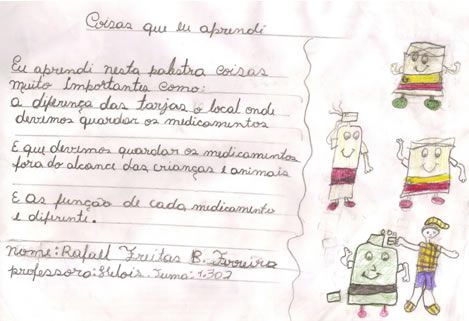 Coisas que eu aprendi
Eu aprendi nesta palestra coisas
muito importantes como:
a diferença das tarjas o local onde
devemos guardar os medicamentos
E que devemos guardar os medicamentos
fora do alcance das crianças e animais
E as função de cada medicamento
e diferente.
nome: Rafael Freitas B. Ferreira
professora: Helois. Tuma: 1.302